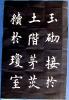 玉砌接於
土階茅茨
續於瓊室